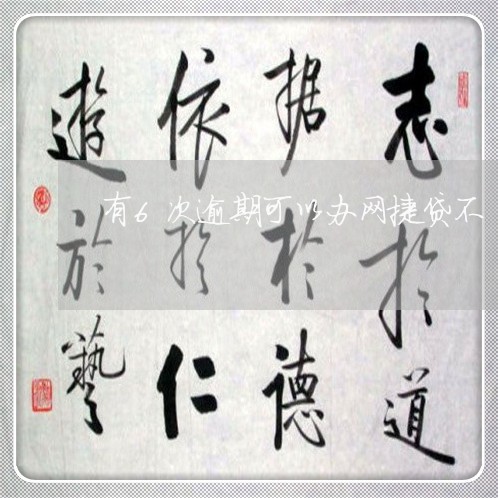 志於道
据於德
依於仁
遊於藝
有6次逾期可以办网捷贷不